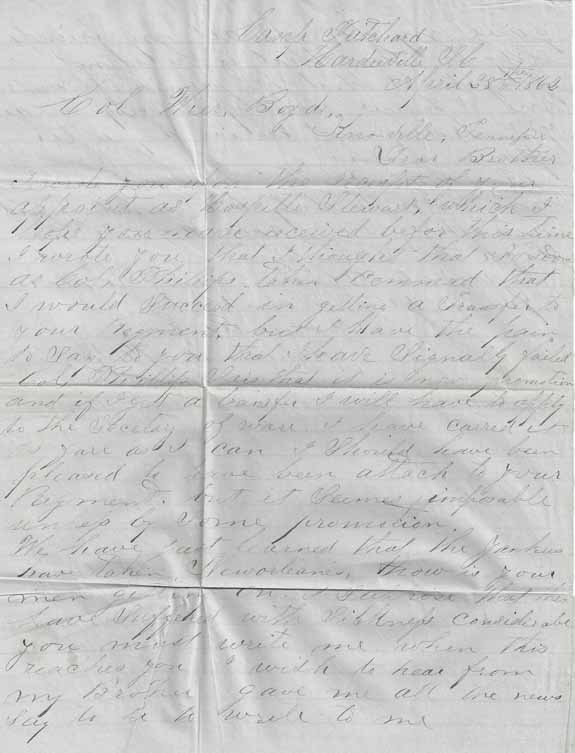 Camp Pritchard
Hardeeville SC
April 28th 1862
Col Wier Boyd,
Knoxville, Tennessee
Dear Brother
I you the receipt of your
appoint as Hospitle Steward, which I
hope you have received befor this time
I wrote you that I thought that as soon
as Col Phillips taken Command that
I would succeed in getting a transfer to
your Regment. but I have the pain
to Say to you that I have Signally failed
Col Phillips Ses that it is promotion
and if I get a transfer I will have to apply
to the Secetary of ware I have caried it
as fare as I can I Should have been
pleased to have been attach to your
Regment. but it Seemes imposable
unless by Some promotion
We have just learned that the Yankees
have taken Neworleanes, how is your
men getting on, I Suppose that you
have Suffered with Sickness considerable
you must write me when this
reaches you I wish to hear from
my Brother gave me all the news
Say to to write to me